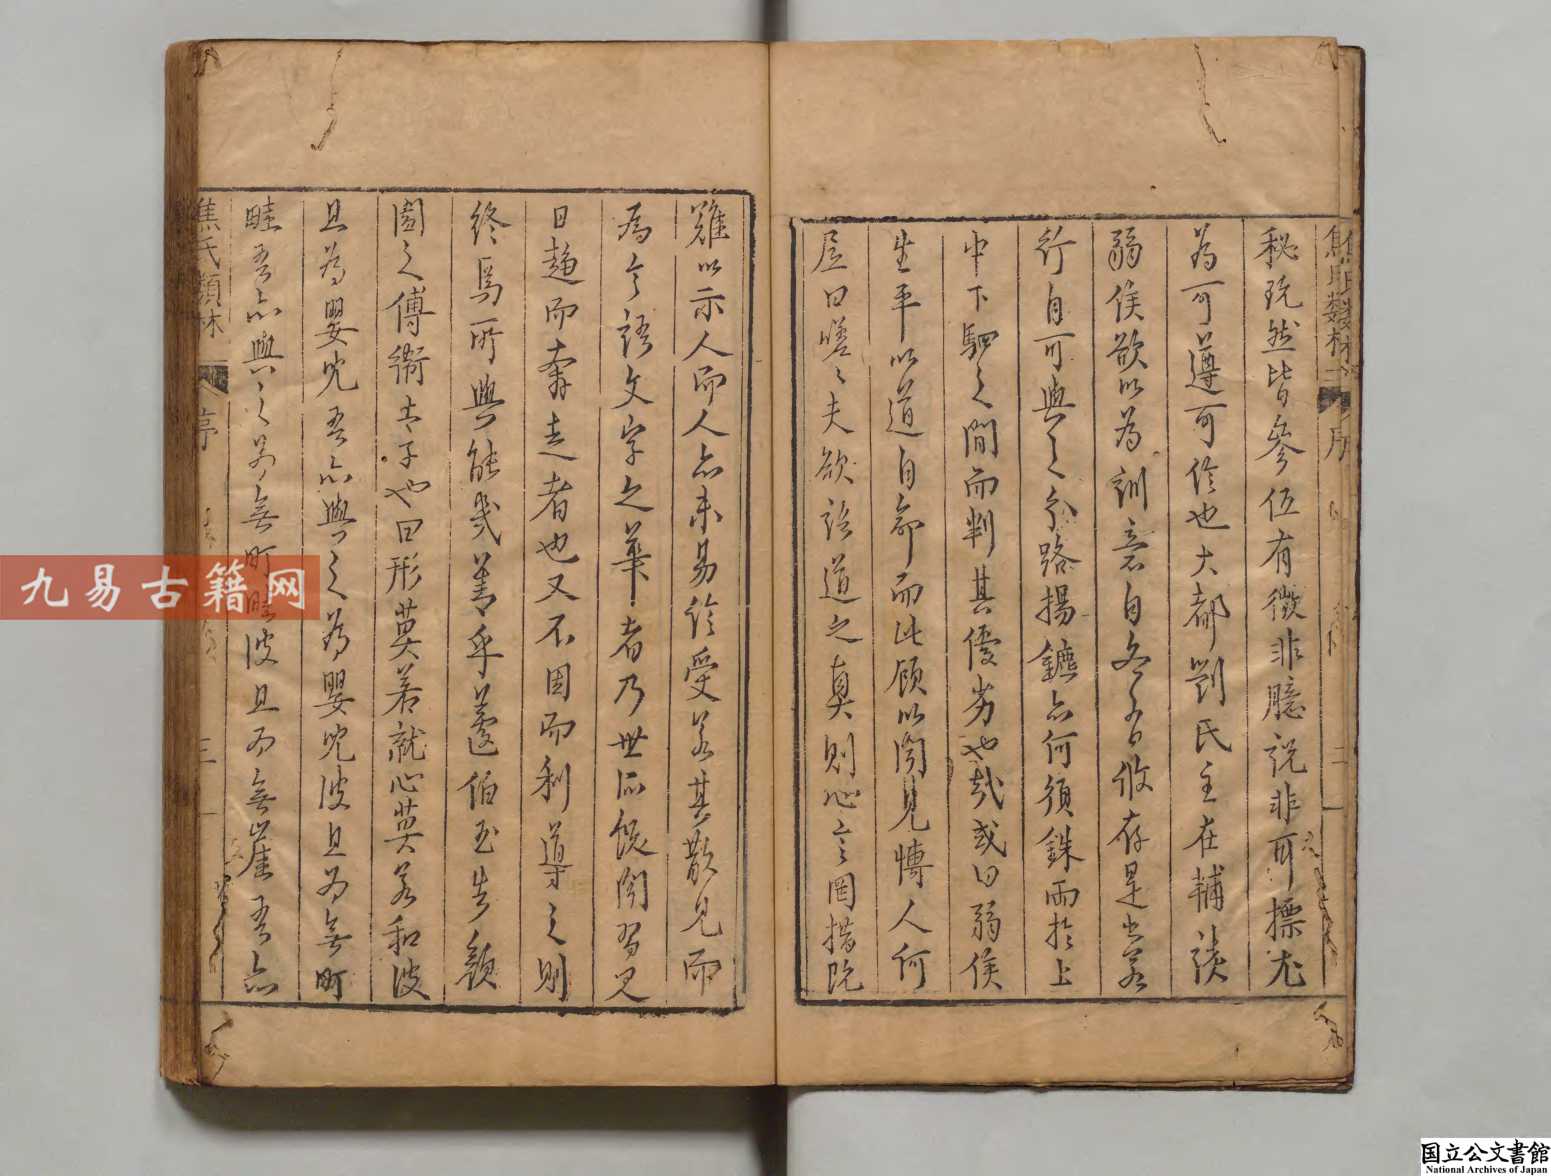 焦氏類林 序 二
秘玩然皆參伍有徵非臆說非耳標尤
為可遵可傳也大都劉氏主在輔談
弱侯欲以為訓意自各有攸存是也若
行自可與之分路揚鑣亦何須銖兩於上
中下駟之間而判其優劣也哉或曰弱侯
生平以道自命而此顧以聞見博人何
居曰嗟〻夫欲語道之真則心言罔措既
難以示人而人亦未易信受若其散見而
為今語文字之華者乃世所飫聞習見
日趨而奔走者也又不因而利導之則
終焉所與能幾善乎蘧伯玉告顏
闔之傅衛太子也曰形莫若就心莫若和彼
且為嬰兒吾亦與之為嬰兒彼且為無町
畦吾亦與之為無町畦彼且為無崖吾亦
焦氏類林 序 三
九易古籍网
国立公文書館
National Archives of Japan